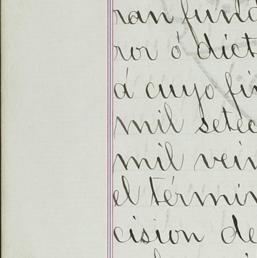 ran fund
ror ó dict
á cuyo fin
mil setec
mil vein
el términ
cision de